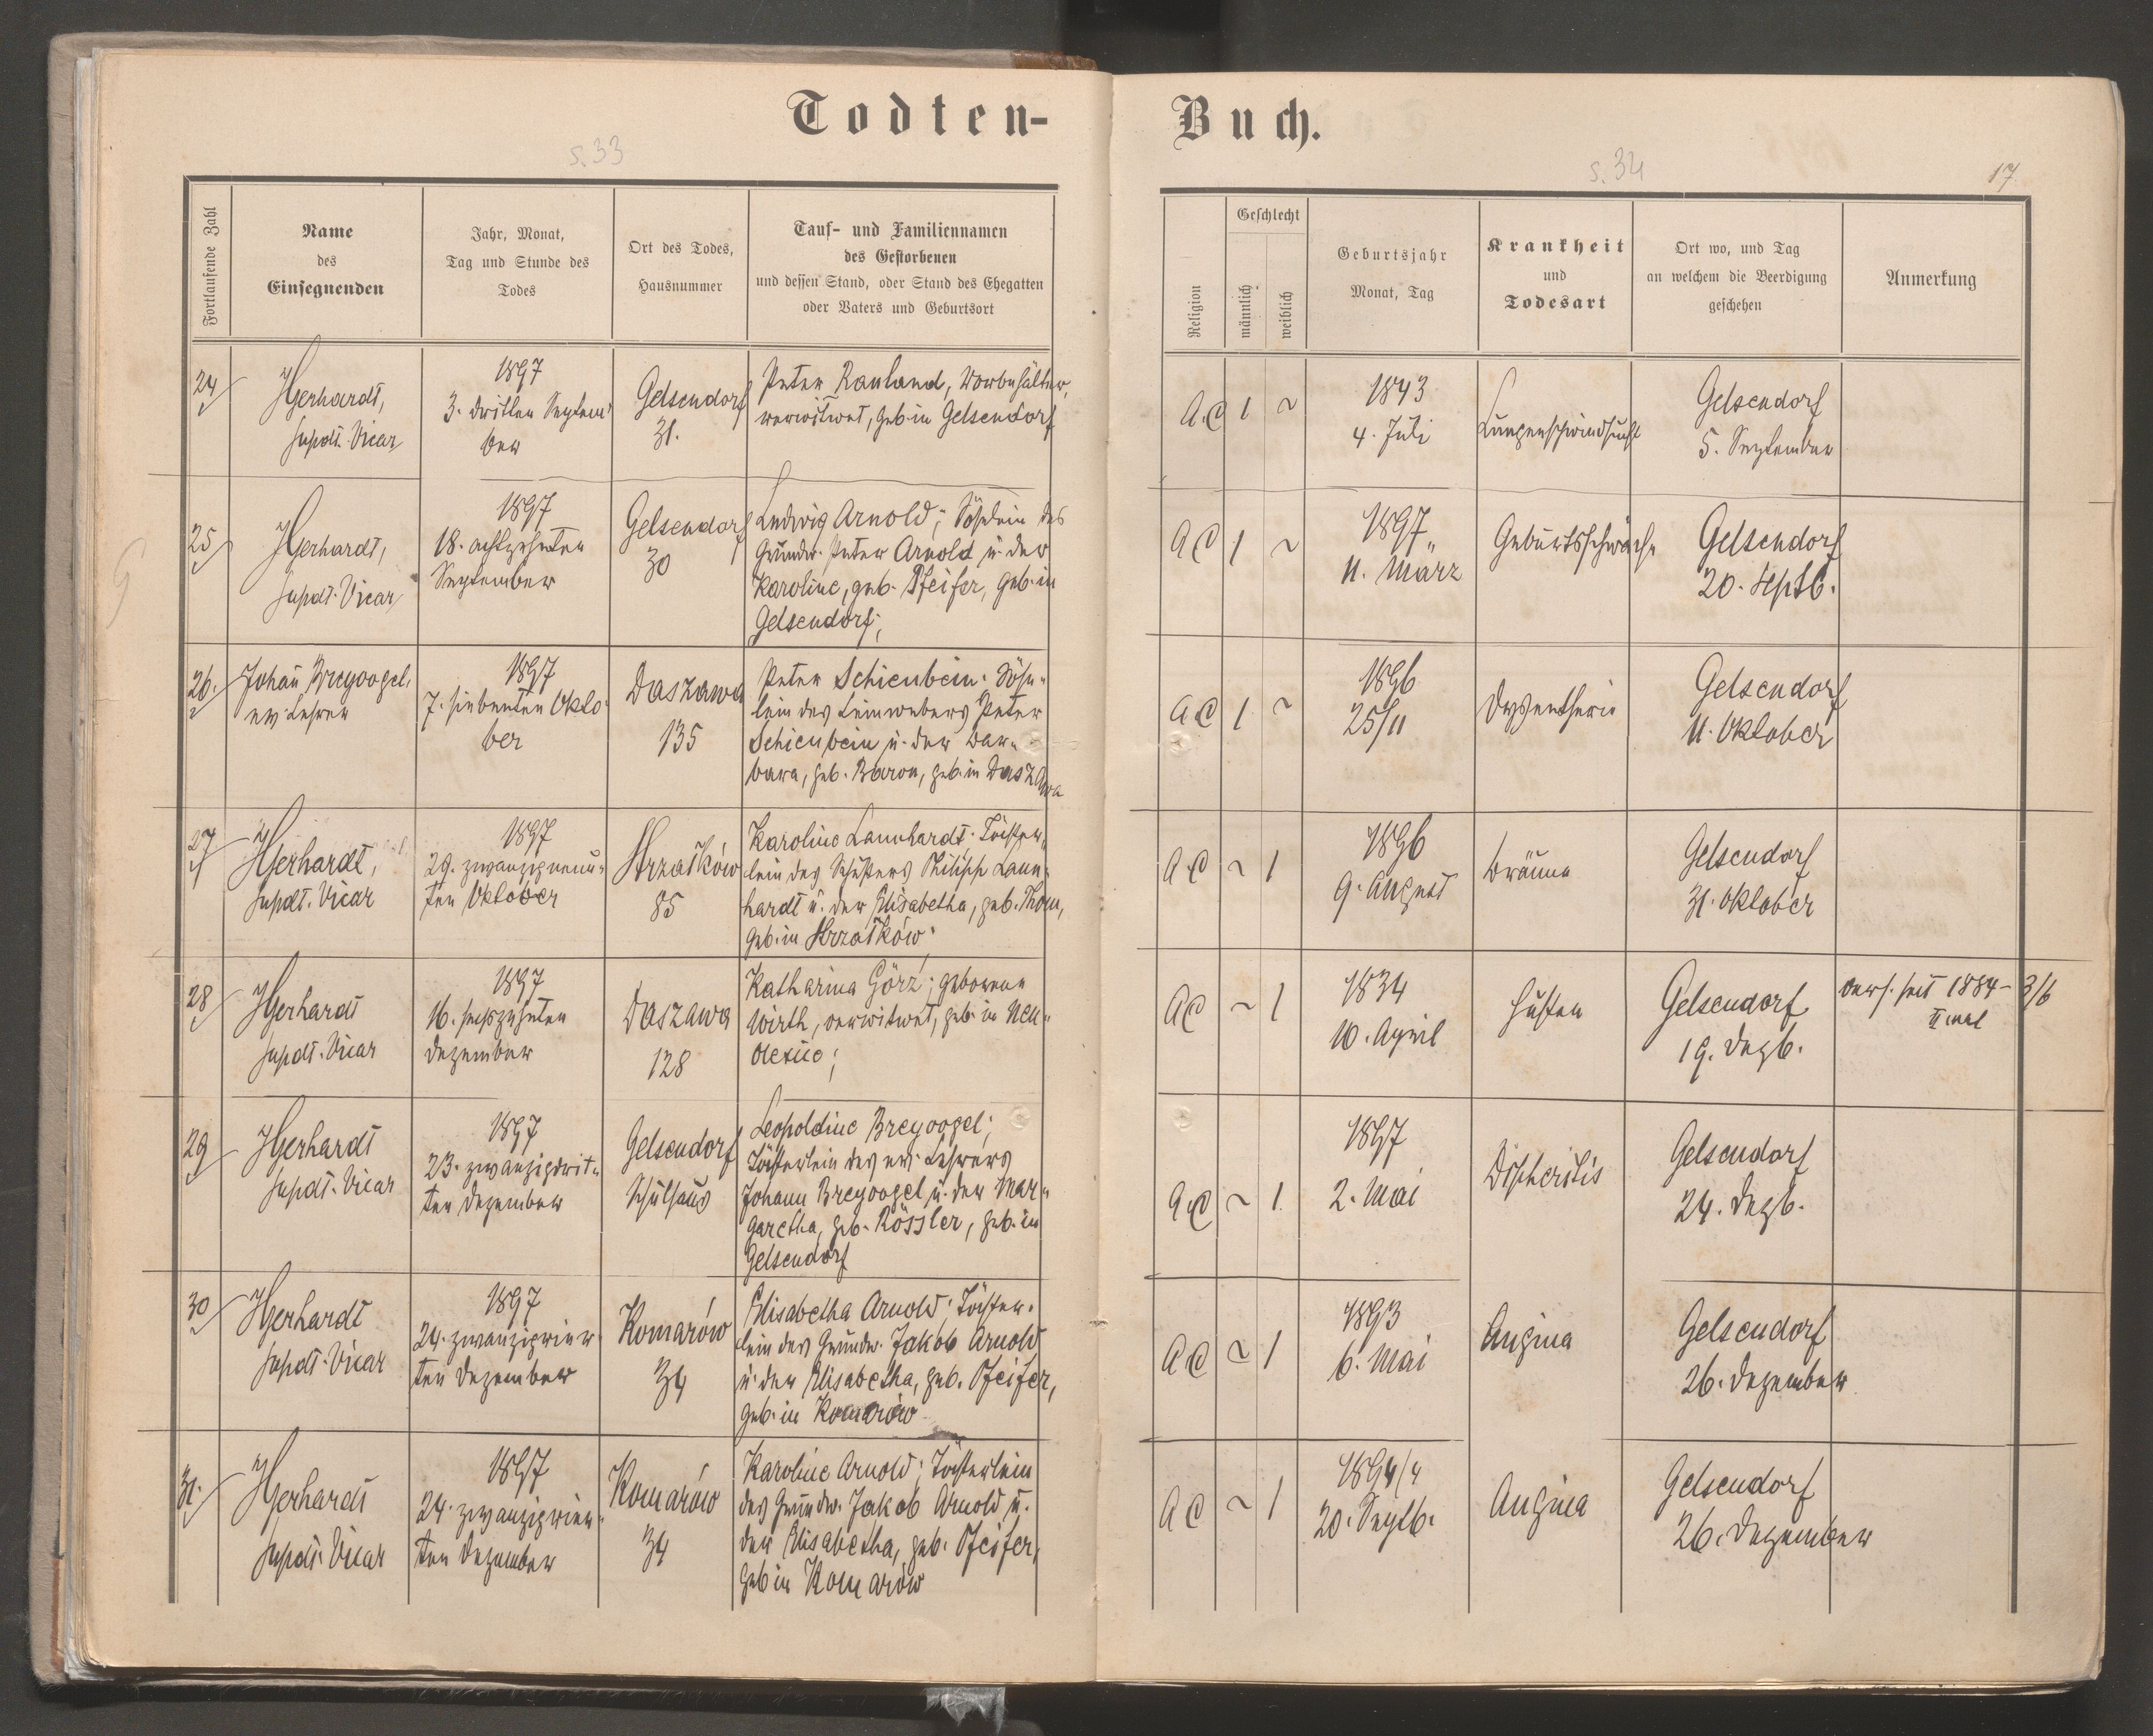 Todten-
Buch.
s. 33
s. 34
17
Fortlaufende Zahl
Name
des
Einsegnenden
Jahr, Monat,
Tag und Stunde des
Todes
Ort des Todes,
Hausnummer
Tauf- und Familiennamen
des Gestorbenen
und dessen Stand, oder Stand des Ehegatten
oder Vaters und Geburtsort
Religion
Geschlecht
männlich
weiblich
Geburtsjahr
Monat, Tag
Krankheit
und
Todesart
Ort wo, und Tag
an welchem die Beerdigung
geschehen
Anmerkung
24
Hgerhardt,
supdt. Vicar
1897
3. dritten Septem
ber
Gelsendorf
31.
Peter Rauland,
verwitwet, geb. in Gelsendorf
AC 1 ~
1843
4. Juli
Lungenschwindsucht
Gelsendorf
5. September
25
Hgerhardt,
supdt. Vicar
1897
18. achtzehnten
September
Gelsendorf
30
Ludwig Arnold; Söhnlein des
Grundw. Peter Arnold u. der
Karoline, geb. Pfeifer, geb. in
Gelsendorf;
AC 1 ~
1897
11. März
Geburtsschwäche
Gelsendorf
20. Septb.
26.
Johañ Breyvogel,
ev. Lehrer
1897
7. siebenten Okto-
ber
Daszawa
135
Peter Schienbein. Söhn-
lein des Leinwebers Peter
Schienbein u. der Bar-
bara, geb. Baron, geb. in Daszawa
AC 1 ~
1896
25/11
Dysentherie
Gelsendorf
11. Oktober
27
Hgerhardt,
supdt. Vicar
1897
29. zwanzigneun-
ten Oktober
85
Karoline Lannhardt. Töchter-
lein des Schusters Philipp Lann-
hardt u. der Elisabetha, geb. Thom,
geb. in
AC ~ 1
1896
9. August
Bräune
Gelsendorf
31. Oktober
28
Hgerhardt
supdt. Vicar
1897
16. sechszehnten
Dezember
Daszawa
128
Katharina Görz; geborene
Wirth, verwitwet, geb. in Neu-
Olexiic;
AC ~ 1
1834
10. April
Husten
Gelsendorf
19. Dezb.
seit 1884 - 3/6
II mal
29
Hgerhardt
supdt. Vicar
1897
23. zwanzigdrit-
ten Dezember
Gelsendorf
Schulhaus
Leopoldine Breyvogel;
Töchterlein des ev. Lehrers
Johann Breyvogel u. der Mar-
garetha, geb. Rössler, geb. in
Gelsendorf
AC ~ 1.
1897
2. Mai
Diphteritis
Gelsendorf
24. Dezb.
30
Hgerhardt
supdt. Vicar
1897
24. zwanzigvier-
ten Dezember
Komarów
34
Elisabetha Arnold; Töchter-
lein des Grundw. Jakob Arnold
u. der Elisabetha, geb. Pfeifer,
geb. in Komarów
AC ~ 1
1893
6. Mai
Angina
Gelsendorf
26. Dezember
31.
Hgerhardt
supdt. Vicar
1897
24. zwanzigvier-
ten Dezember
Komarów
34
Karoline Arnold; Töchterlein
des Grundw. Jakob Arnold u.
der Elisabetha, geb. Pfeifer,
geb in Komarów
AC ~ 1
1894/4
20. Septb.
Angina
Gelsendorf
26. Dezember